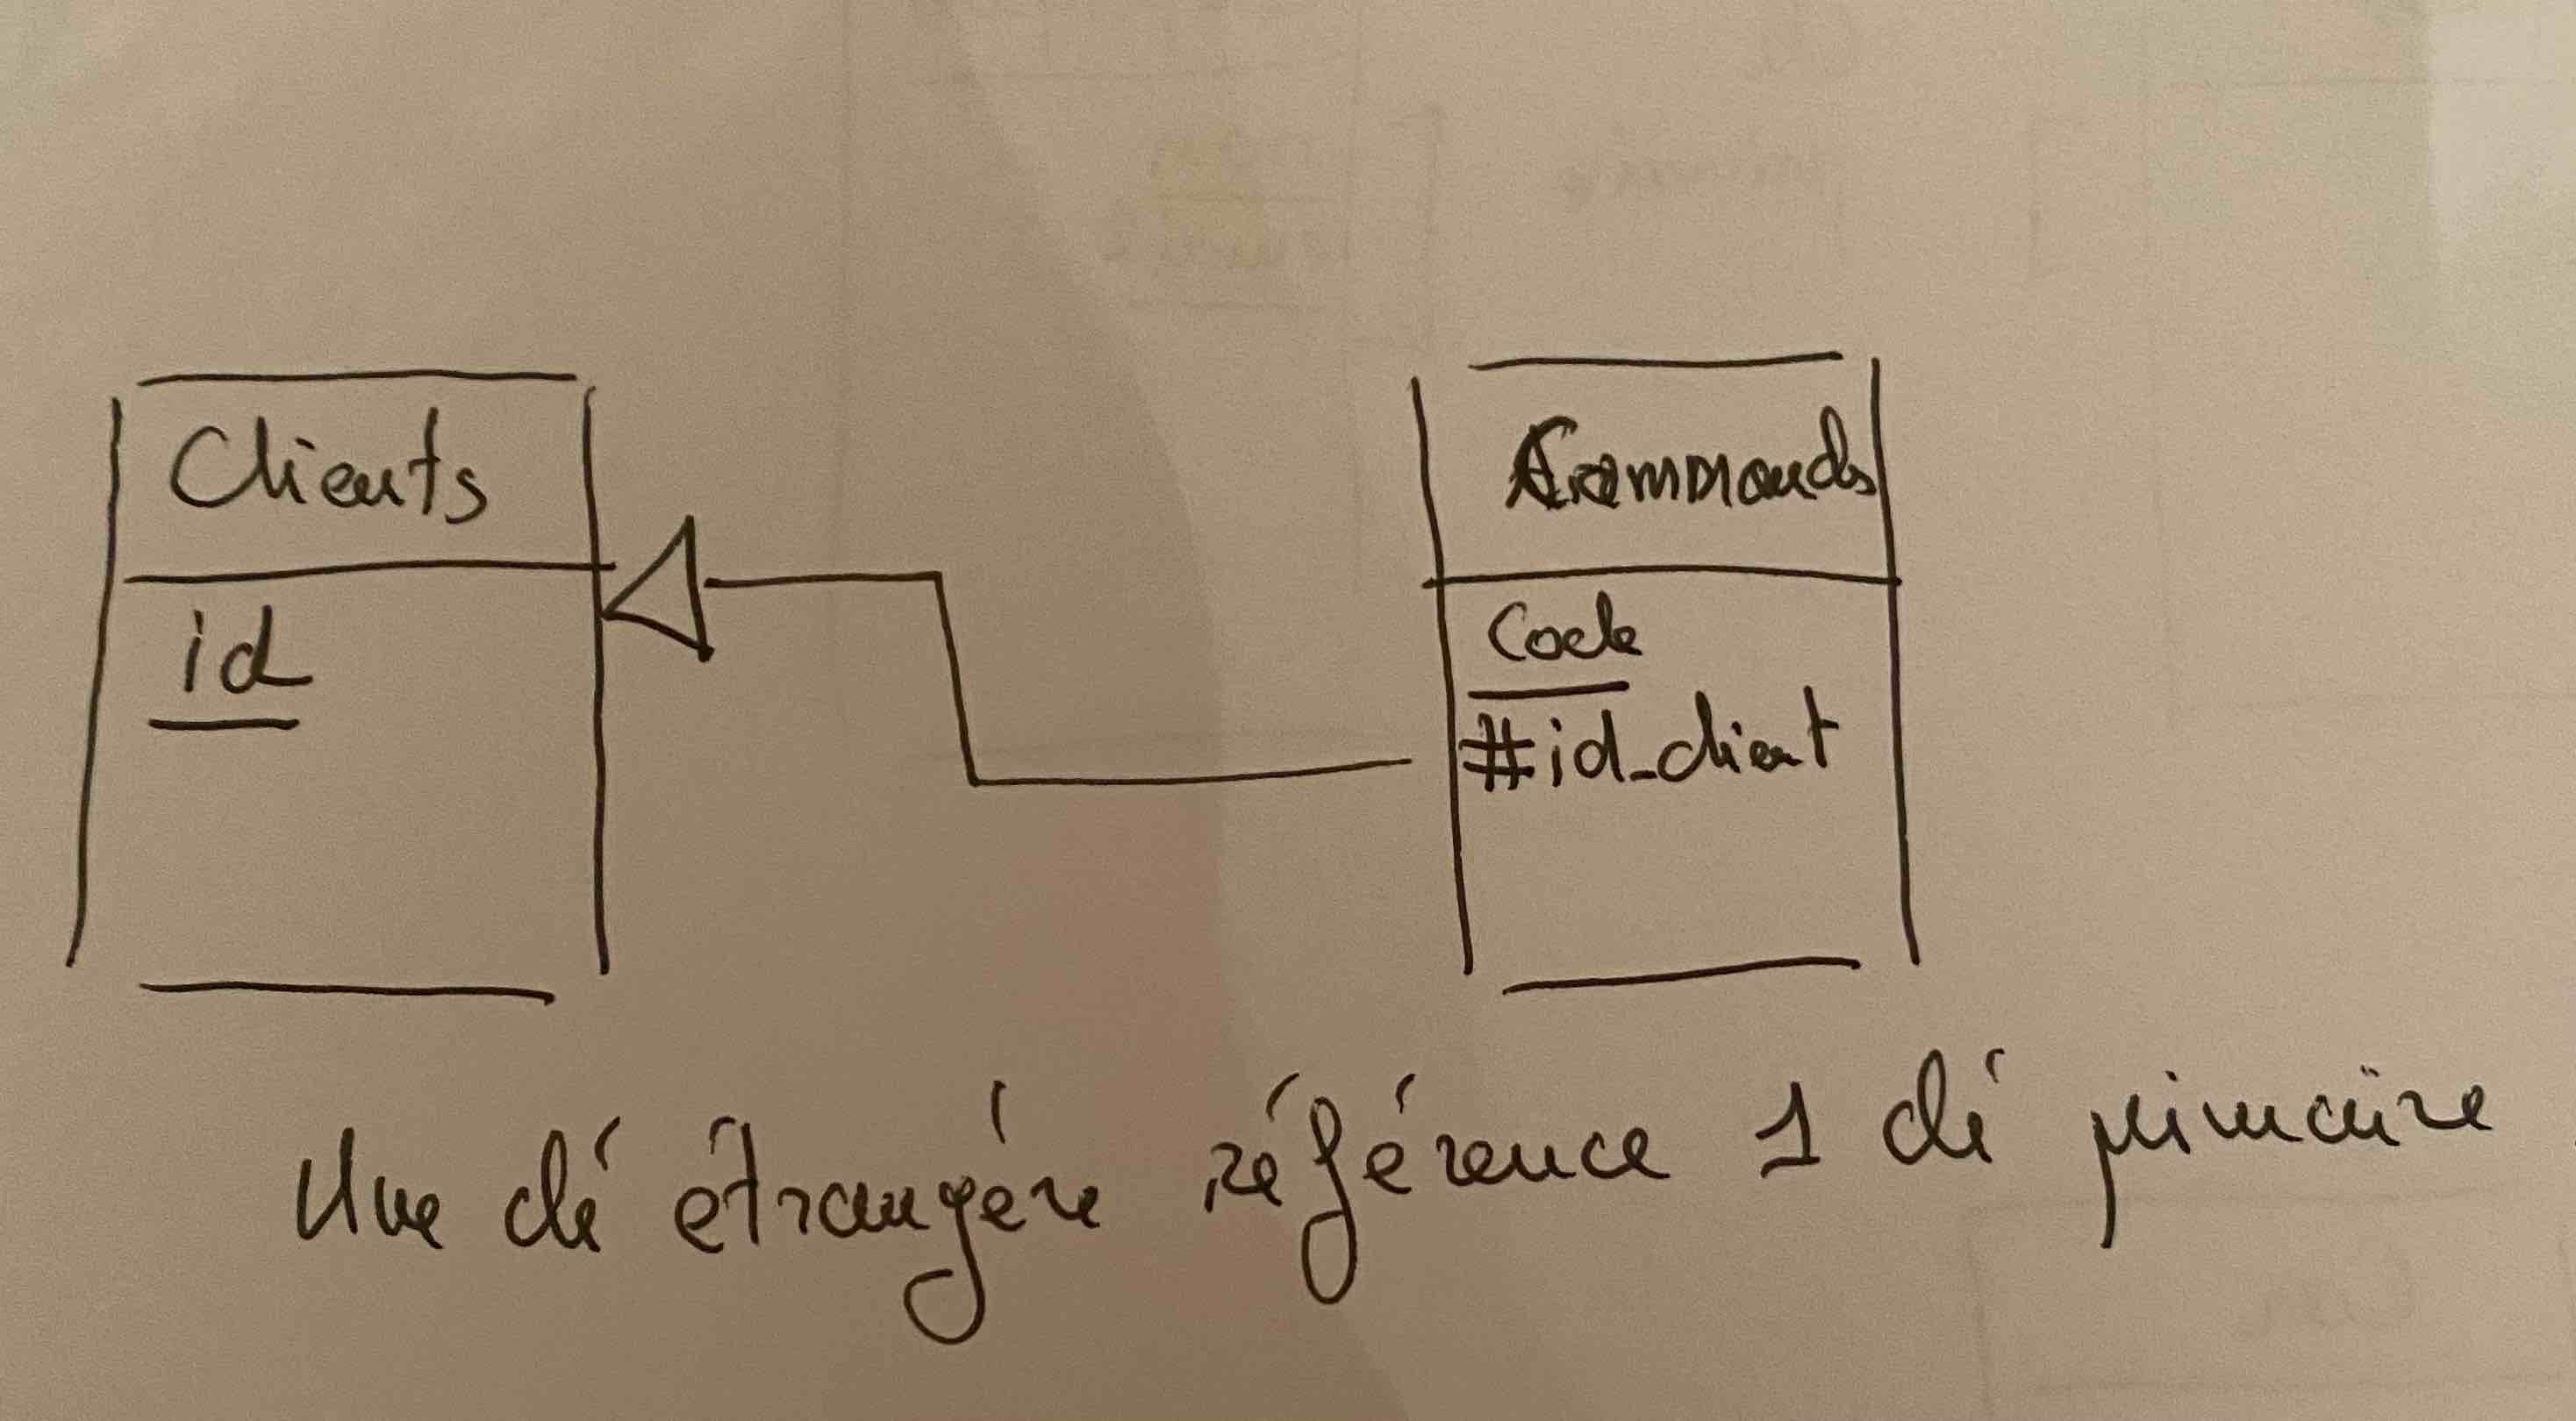 Clients
id
Commandes
Code
#id_client
Une clé étrangère référence 1 clé primaire